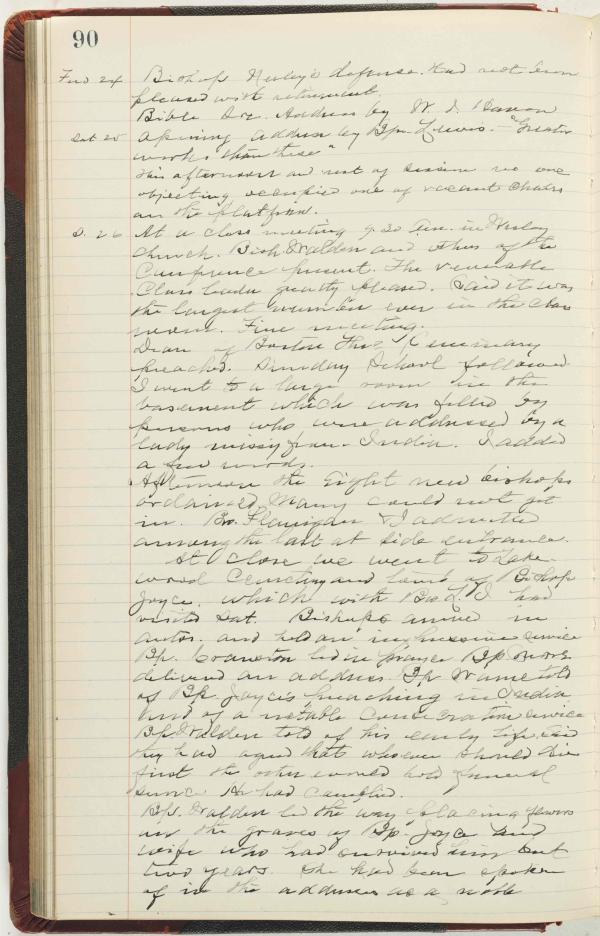 90
Bishop Neely's defense. Had not been
pleased with retirement.
Bible Soc. Address by W. I. Haven
Sat 25 Opening address by Bp. Lewis. "Greater
works than these"
This afternoon and rest of session no one
objecting occupied one of vacant chairs
on the platform.
S. 26 At a class meeting 9.30 a.m. in Wesley
Church. Bish Walden and others of the
Conference present. The venerable
Class leader greatly pleased. Said it was
the largest number ever in the class
room. Fine meeting.
Dean of Boston Theo Seminary
preached. Sunday School followed
I went to a large room in the
basement which was filled by
persons who were addressed by a
lady missy from India. I added
a few words.
Afternoon the eight new bishops
ordained, Many could not get
in. Bro. Flanigan & I admitted
among the last at side entrance.
At close we went to Lake-
wood Cemetery and tomb of Bishop
Joyce, which with Bro L. I had
visited Sat. Bishops arrived in
autos. and held an impressive service
Bp. Cranston led in prayer Bp Moore
delivered an address. Bp Warne told
of Bp. Joyce's preaching in India
and of a notable Consecration service
Bp. Walden told of his early life, said
they had agreed that whoever should die
first the other would hold funeral
service He had complied.
Bp. Walden led the way placing flowers
on the graves of Bp. Joyce and
wife who had survived him but
two years. She had been spoken
of in the addresses as a noble